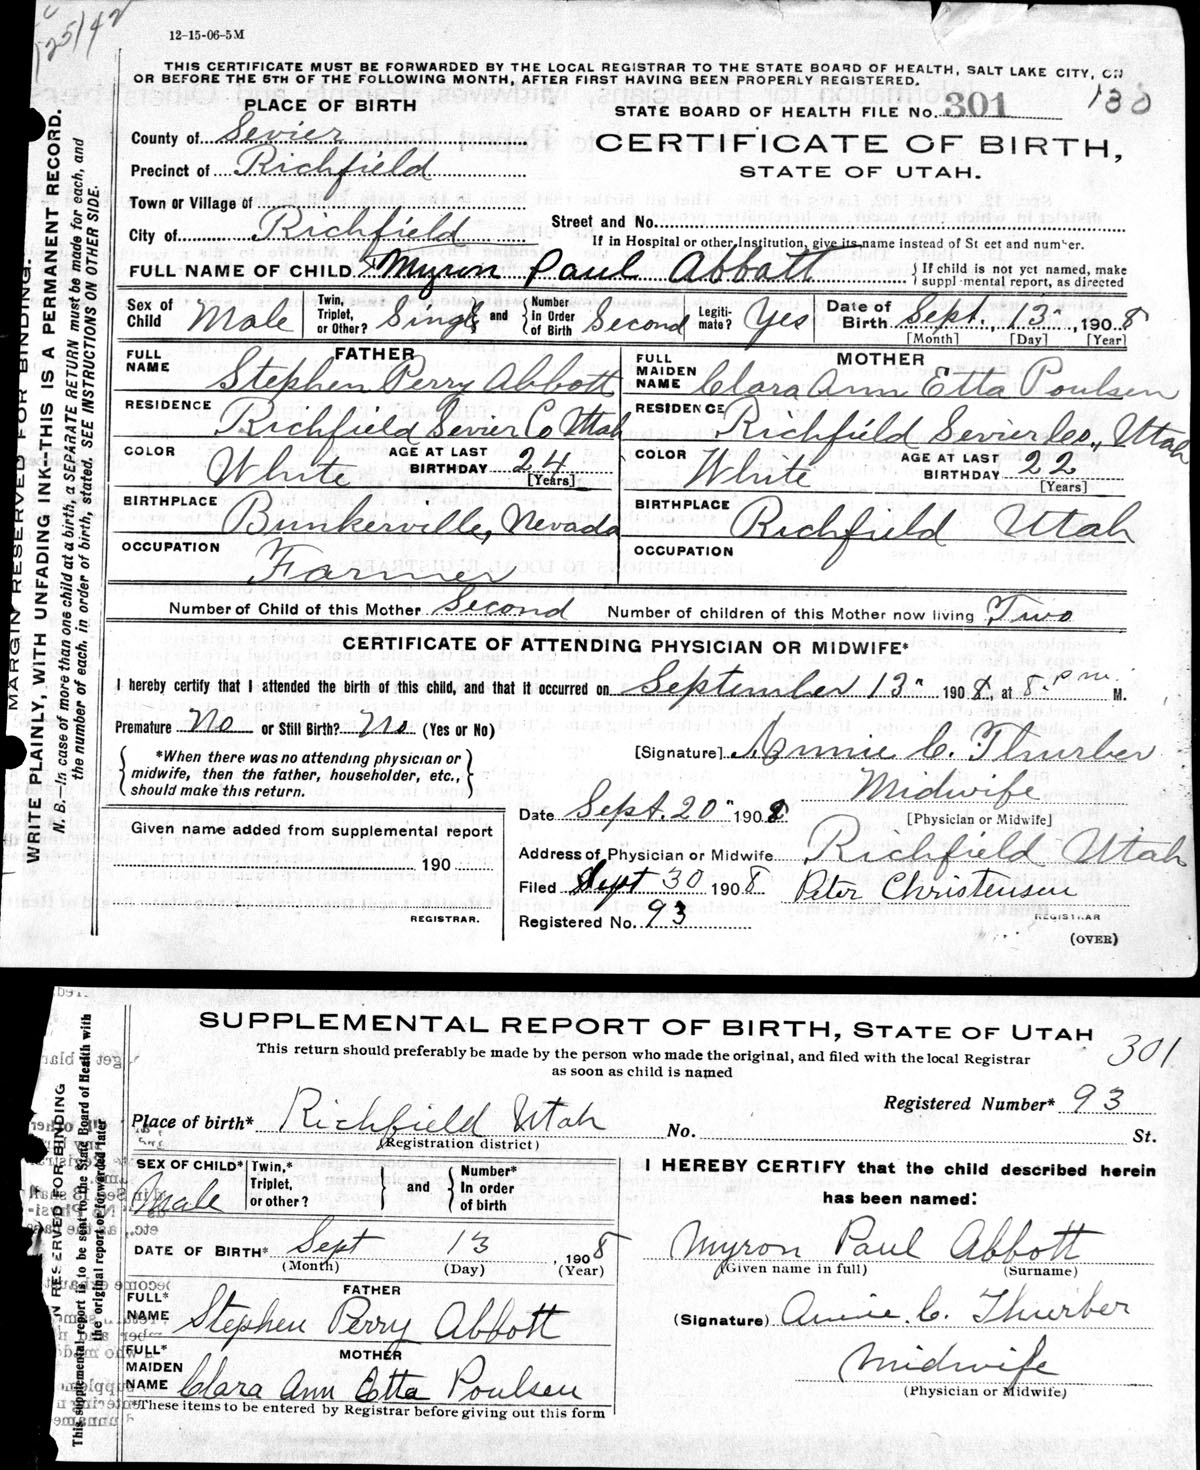 12-15-06-5M
THIS CERTIFICATE MUST BE FORWARDED BY THE LOCAL REGISTRAR TO THE STATE BOARD OF HEALTH, SALT LAKE CITY, ON
OR BEFORE THE 5TH OF THE FOLLOWING MONTH, AFTER FIRST HAVING BEEN PROPERLY REGISTERED.
PLACE OF BIRTH
STATE BOARD OF HEALTH FILE No. 301 130
County of Sevier
CERTIFICATE OF BIRTH,
Precinct of Richfield
STATE OF UTAH.
Town or Village of
City of Richfield
Street and No.
If in Hospital or other Institution, give its name instead of St eet and number.
FULL NAME OF CHILD Myron Paul Abbott
If child is not yet named, make supplemental report, as directed
Sex of Child Male
Twin, Triplet, or Other? Single and Number in Order of Birth Second
Legiti-mate? Yes
Date of Birth Sept., 13", 1908
[Month] [Day] [Year]
FATHER
FULL NAME Stephen Perry Abbott
RESIDENCE Richfield Sevier Co Utah
COLOR White AGE AT LAST BIRTHDAY 24 [Years]
BIRTHPLACE Bunkerville, Nevada
OCCUPATION Farmer
MOTHER
FULL MAIDEN NAME Clara Ann Etta Poulsen
RESIDENCE Richfield Sevier Co., Utah
COLOR White AGE AT LAST BIRTHDAY 22 [Years]
BIRTHPLACE Richfield Utah
OCCUPATION
Number of Child of this Mother Second Number of children of this Mother now living Two
CERTIFICATE OF ATTENDING PHYSICIAN OR MIDWIFE*
I hereby certify that I attended the birth of this child, and that it occurred on September 13" 1908, at 8. P m. M.
Premature No or Still Birth? No (Yes or No)
*When there was no attending physician or
midwife, then the father, householder, etc.,
should make this return.
[Signature] Annie C. Thurber
Midwife
[Physician or Midwife]
Date Sept. 20" 1908
Address of Physician or Midwife Richfield Utah
Filed Sept 30 1908 Peter Christensen
REGISTRAR
Registered No. 93
(OVER)
Given name added from supplemental report
190
REGISTRAR.
MARGIN RESERVED FOR BINDING.
WRITE PLAINLY, WITH UNFADING INK--THIS IS A PERMANENT RECORD.
N. B.—In case of more than one child at a birth, a SEPARATE RETURN must be made for each, and
the number of each, in order of birth, stated. SEE INSTRUCTIONS ON OTHER SIDE.
SUPPLEMENTAL REPORT OF BIRTH, STATE OF UTAH
301
This return should preferably be made by the person who made the original, and filed with the local Registrar
as soon as child is named
Registered Number* 93
Place of birth* Richfield Utah No. St.
(Registration district)
SEX OF CHILD* Male
Twin,* Triplet, or other? and Number* In order of birth
DATE OF BIRTH* Sept 13, 1908
(Month) (Day) (Year)
FATHER
FULL* NAME Stephen Perry Abbott
MOTHER
FULL* MAIDEN NAME Clara Ann Etta Poulsen
*These items to be entered by Registrar before giving out this form
I HEREBY CERTIFY that the child described herein
has been named:
Myron Paul Abbott
(Given name in full) (Surname)
(Signature) Annie. C. Thurber
Midwife
(Physician or Midwife)
N RESERVED FOR BINDING
This supplemental report is to be sent to the State Board of Health with
the original report or forwarded later